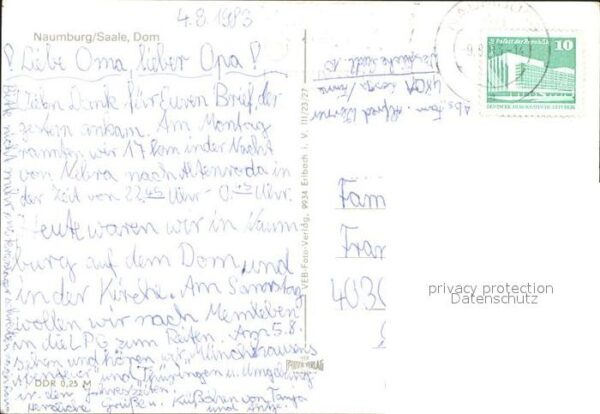 4.8.1983
Naumburg/Saale, Dom
! Liebe Oma, lieber Opa!
Vielen Dank für Euren Brief, der
gestern ankam. Am Montag
rannten wir 17 km in der Nacht
von Nebra nach Altenroda in
der Zeit von 22.45 Uhr - 0.45 Uhr.
Heute waren wir in Naum
burg auf dem Dom und
in der Kirche. Am Samstag
wollen wir nach Memleben
in die LPG zum Reiten. Am 5.8.
sehen und hören wir "Münchhausens
Abenteuer" und "Thüringen u. Umgebung
in den Jahreszeiten.
Herzliche Grüße u. Küßchen von Tanja
und
DDR 0,25 M
VEB-Foto-Verlag, 9934 Erlbach i. V. III/23/27
Abs. Fam. Alfred
4801
Palast der Republik
10
DEUTSCHE DEMOKRATISCHE REPUBLIK
Fam
Fran
4030
privacy protection
Datenschutz